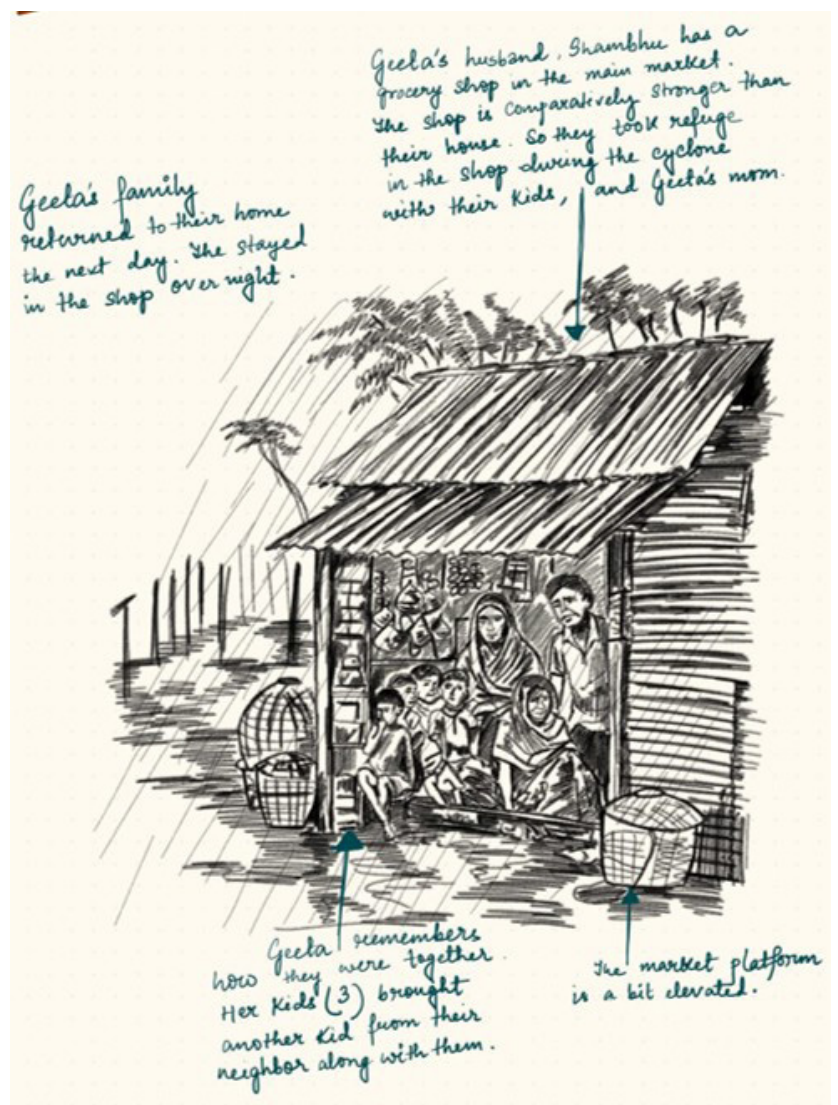 Geeta's husband, Shambhu has a
grocery shop in the main market.
The shop is comparatively stronger than
their house. So they took refuge
in the shop during the cyclone
with their kids, and Geeta's mom.
Geeta's family
returned to their home
the next day. The stayed
in the shop over night.
Geeta remembers
how they were together.
Her kids (3) brought
another kid from their
neighbor along with them.
The market platform
is a bit elevated.